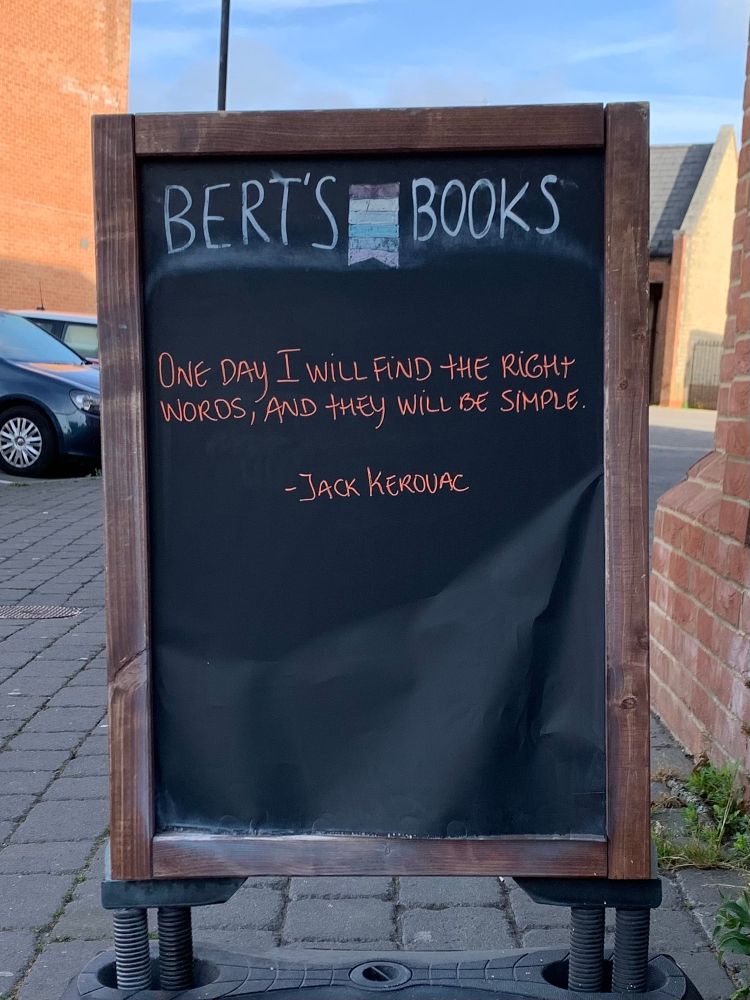 BERT'S BOOKS
ONE DAY I WILL FIND THE RIGHT
WORDS, AND THEY WILL BE SIMPLE.
-JACK KEROUAC